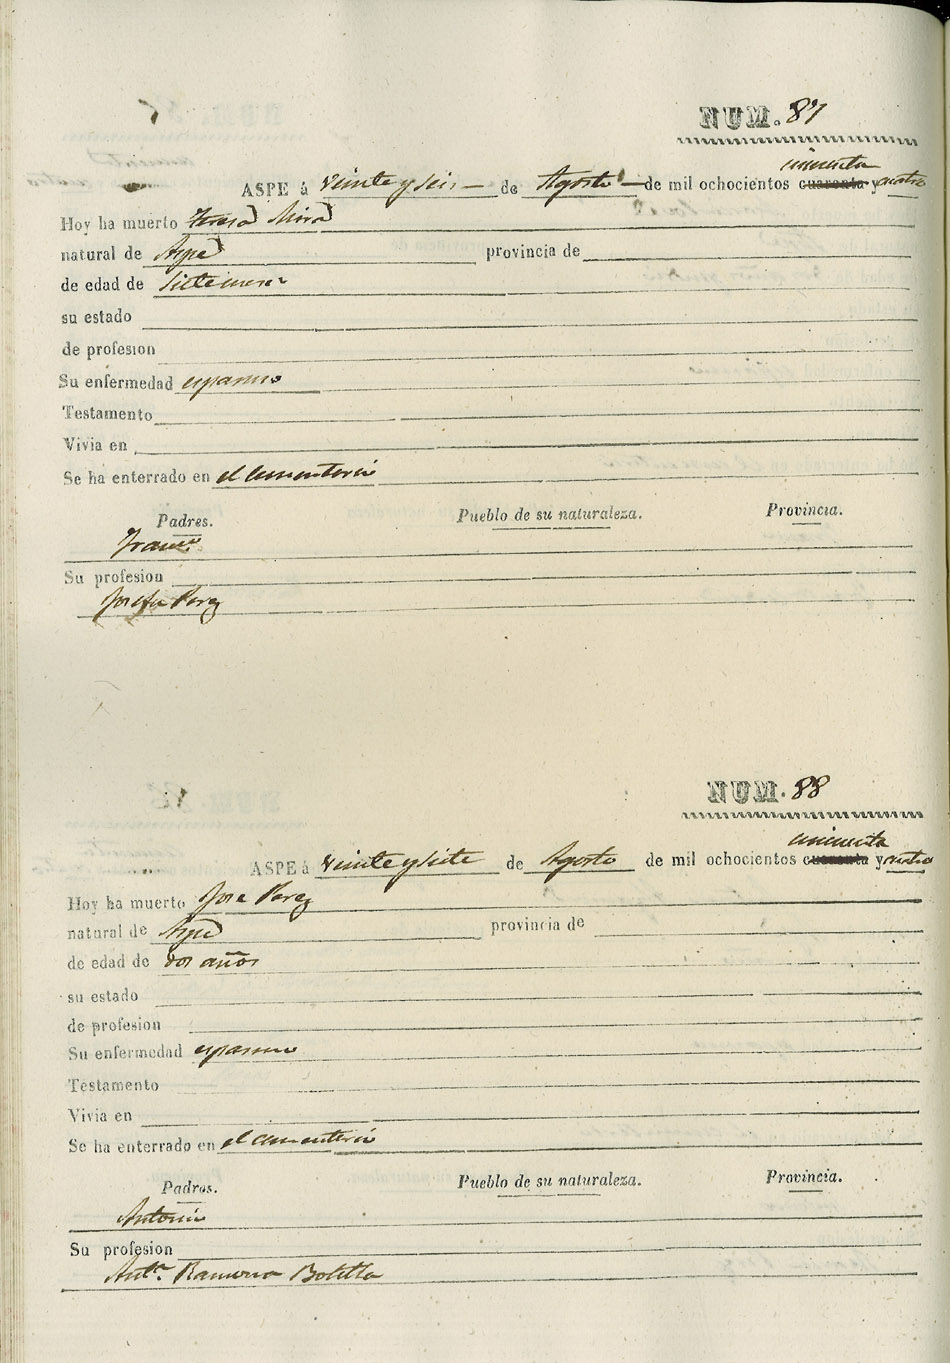 NUM. 87
cincuenta
ASPE á veinte y seis de Agosto de mil ochocientos cuarenta y cuatro
Hoy ha muerto Teresa Mira
natural de Aspe provincia de
de edad de siete meses
su estado
de profesion
Su enfermedad espasmo
Testamento
Vivia en
Se ha enterrado en el cementerio
Padres. Pueblo de su naturaleza. Provincia.
Franco.
Su profesion
Josefa Perez
NUM. 88
cincuenta
ASPE á veinte y siete de Agosto de mil ochocientos cuarenta y cuatro
Hoy ha muerto Jose Perez
natural de Aspe provincia de
de edad de dos años
su estado
de profesion
Su enfermedad espasmo
Testamento
Vivia en
Se ha enterrado en el cementerio
Padres. Pueblo de su naturaleza. Provincia.
Antonio
Su profesion
Anta. Ramona Botella